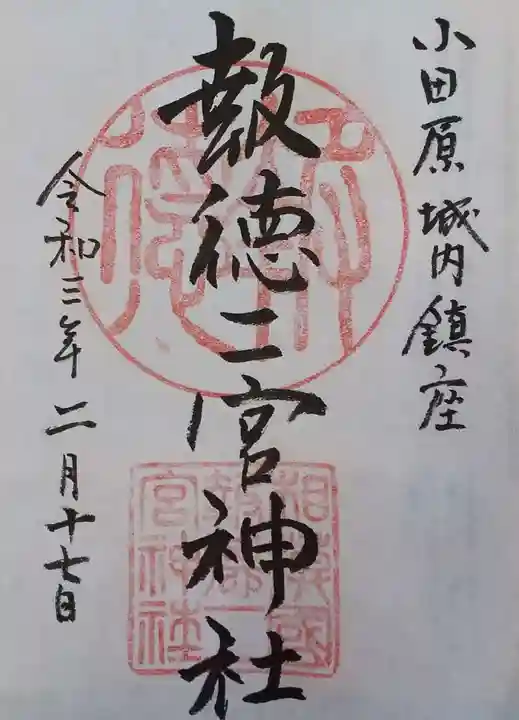 小田原城内鎮座
報徳二宮神社
令和三年二月十七日
相模國
報徳二
宮神社